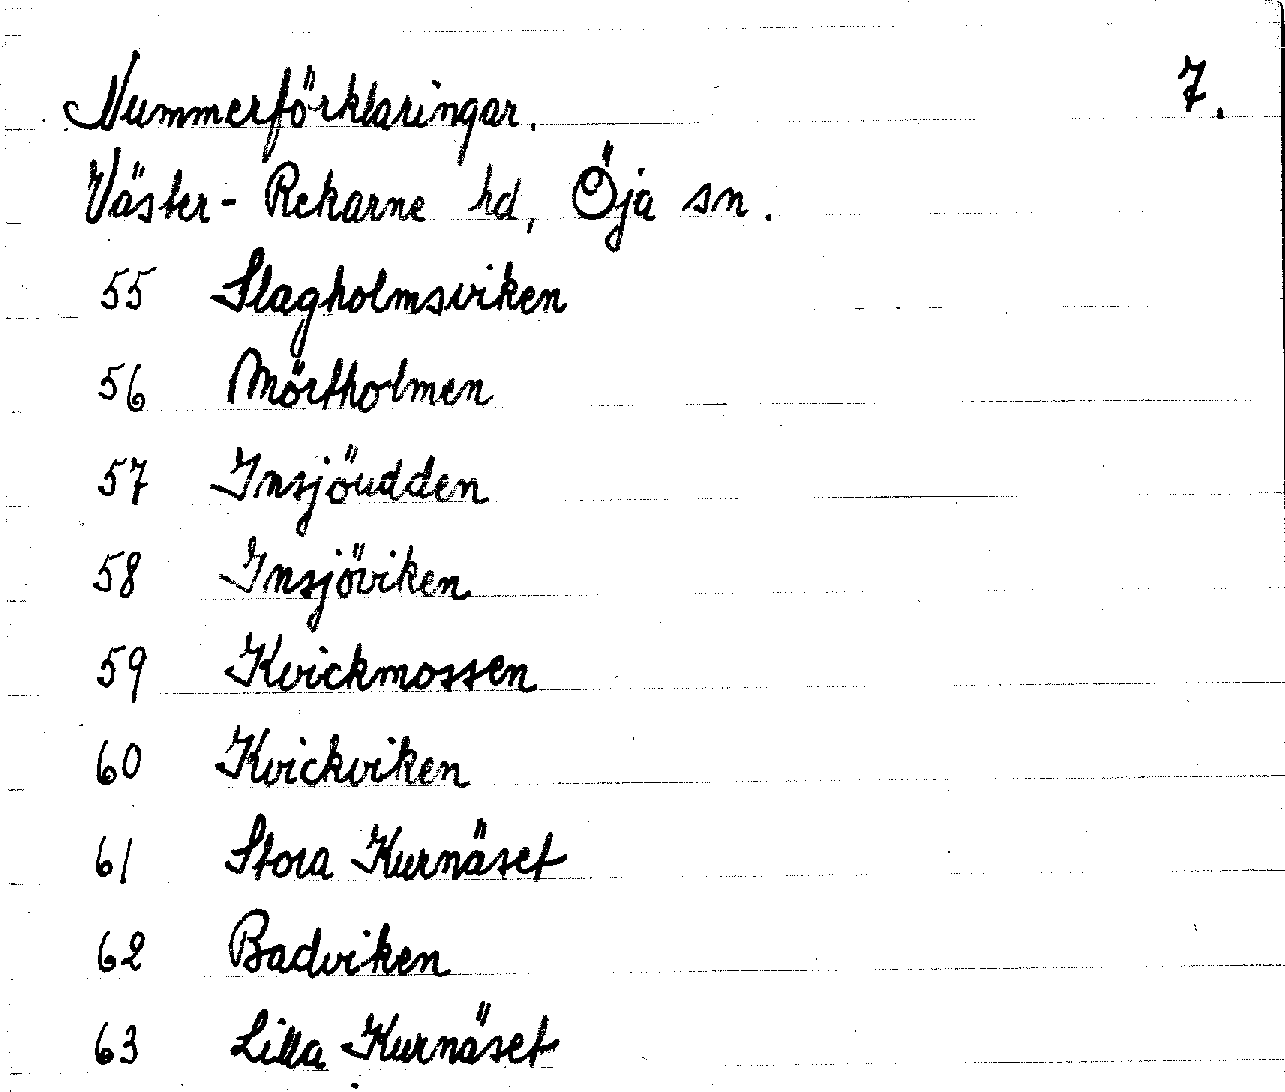 Nummerförklaringar. 7.
Väster-Rekarne hd, Öja sn.
55 Slagholmsviken
56 Mörtholmen
57 Insjöudden
58 Insjöviken
59 Kvickmossen
60 Kvickviken
61 Stora Kurnäset
62 Badviken
63 Lilla Kurnäset